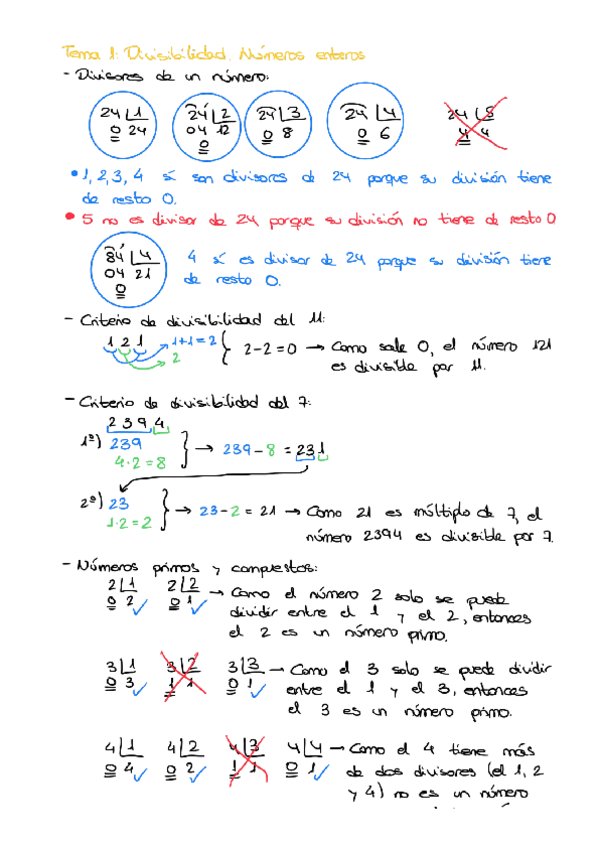 Tema 1: Divisibilidad. Números enteros
- Divisores de un número:
24 1 24 2 24 3 24 4 24 5
0 24 04 12 0 8 0 6 4 4
0
• 1, 2, 3, 4 sí son divisores de 24 porque su división tiene
de resto 0.
• 5 no es divisor de 24 porque su división no tiene de resto 0
84 4 4 sí es divisor de 24 porque su división tiene
04 21 de resto 0.
0
- Criterio de divisibilidad del 11:
1 2 1 1+1=2 2-2=0 → Como sale 0, el número 121
2 es divisible por 11.
- Criterio de divisibilidad del 7:
2 3 9 4
1º) 239 → 239-8 = 231
4·2=8
2º) 23 → 23-2 = 21 → Como 21 es múltiplo de 7, el
1·2=2 número 2394 es divisible por 7.
- Números primos y compuestos:
2 1 2 2 → Como el número 2 solo se puede
0 2 0 1 dividir entre el 1 y el 2, entonces
el 2 es un número primo.
3 1 3 2 3 3 → Como el 3 solo se puede dividir
0 3 1 1 0 1 entre el 1 y el 3, entonces
el 3 es un número primo.
4 1 4 2 4 3 4 4 → Como el 4 tiene más
0 4 0 2 1 1 0 1 de dos divisores (el 1, 2
y 4) no es un número